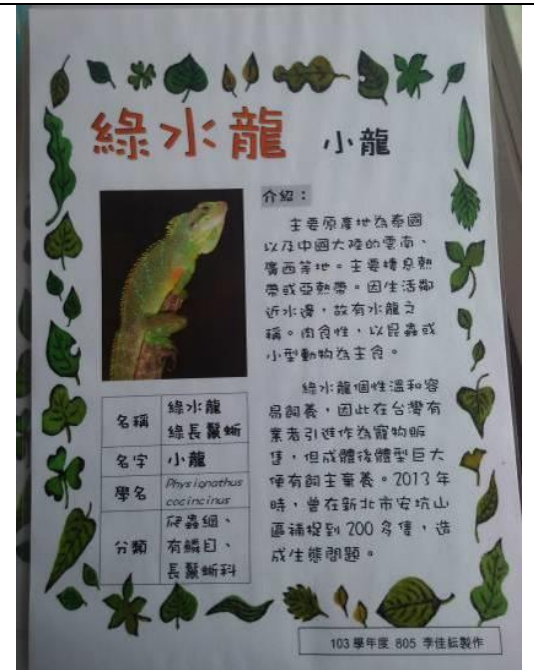 綠水龍 小龍
介紹：
主要原產地為泰國
以及中國大陸的雲南、
廣西等地。主要棲息熱
帶或亞熱帶。因生活鄰
近水邊，故有水龍之
稱。肉食性，以昆蟲或
小型動物為主食。
綠水龍個性溫和容
易飼養，因此在台灣有
業者引進作為寵物販
售，但成體後體型巨大
便有飼主棄養。2013年
時，曾在新北市安坑山
區補捉到200多隻，造
成生態問題。
名稱 綠水龍
綠長鬣蜥
名字 小龍
學名 Physignathus
cocincinus
分類 爬蟲綱、
有鱗目、
長鬣蜥科
103學年度 805 李佳耘製作